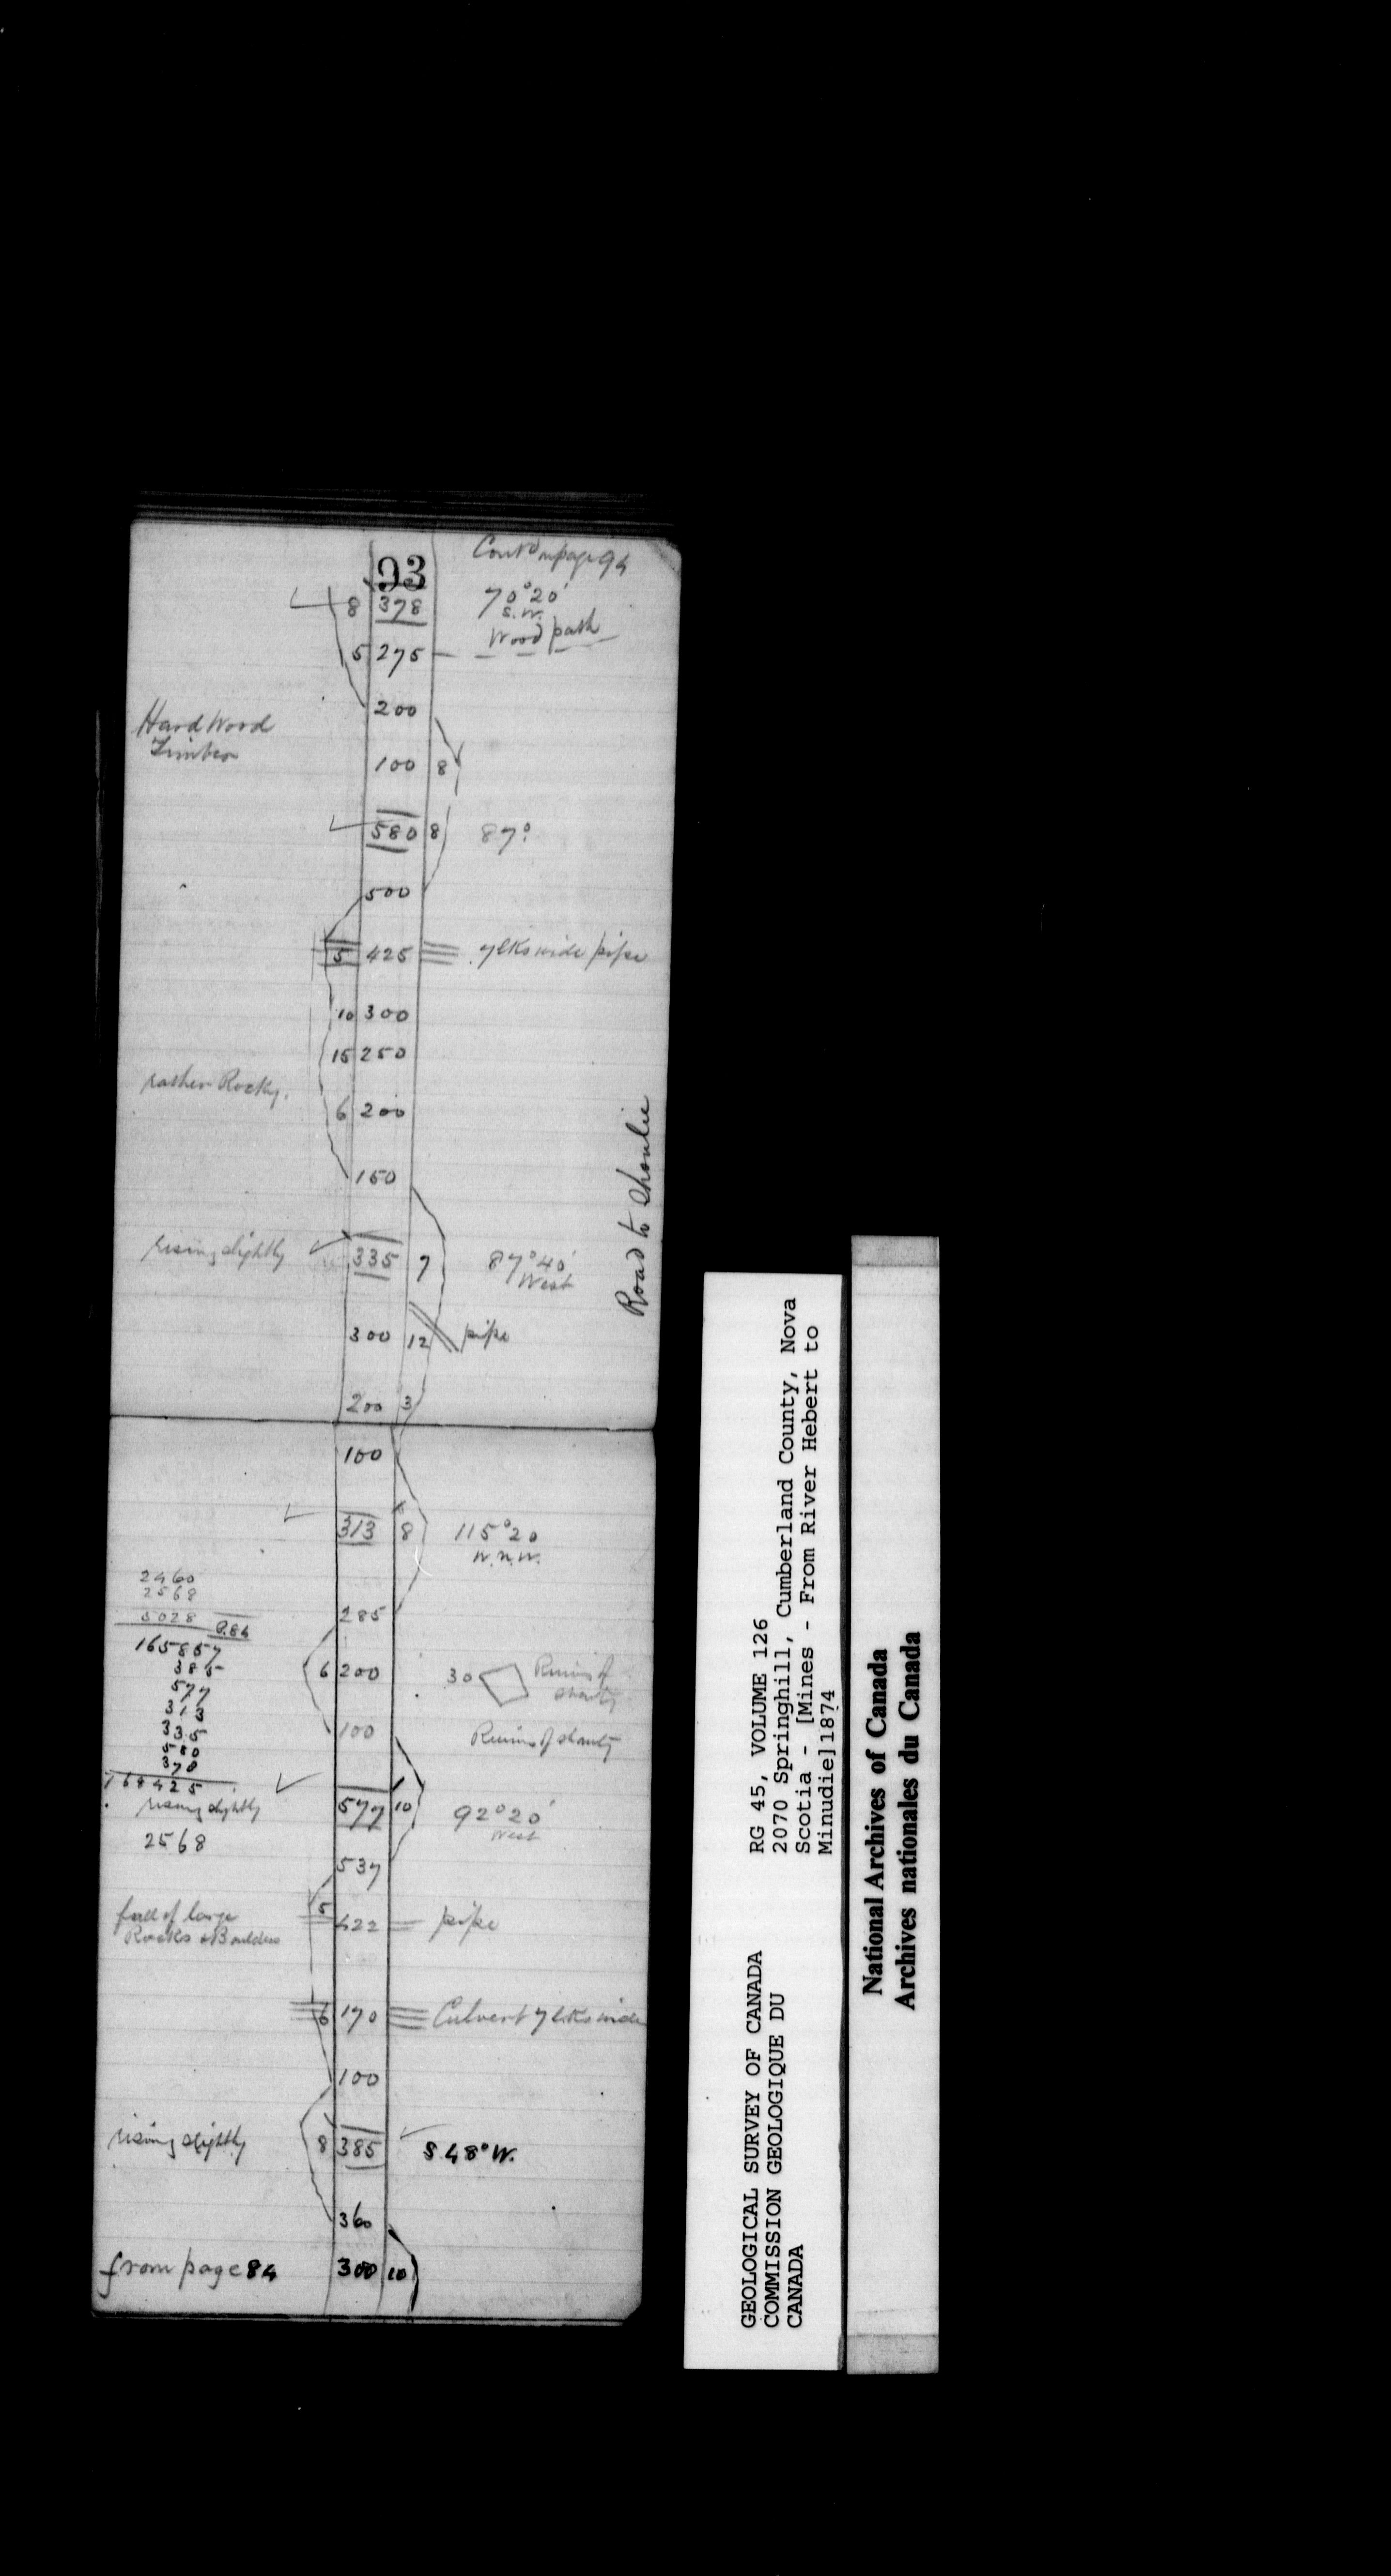 93
Contd on page 94
8 378 70°20'
S.W.
Wood path
5 275
200
Hard Wood
Timber
100 8
580 8 87°
500
5 425 7 lks wide pipe
10 300
15 250
rather Rocky.
6 200
150
rising slightly 335 7 87°40'
West
300 12 pipe
200 3
Road to Shoulie
100
313 8 115°20
W.N.W.
2460
2568
5028 P.84
285
165857
385
577
313
335
580
378
168425
6 200 30 Ruins of
shanty
100 Ruins of shanty
577 10 92°20'
West
rising slightly
2568
537
full of large
Rocks & Boulders
5 422 pipe
6 170 Culvert 7 lks wide
100
rising slightly 8 385 S 48° W.
360
from page 84 300 10
GEOLOGICAL SURVEY OF CANADA
COMMISSION GEOLOGIQUE DU
CANADA
RG 45, VOLUME 126
2070 Springhill, Cumberland County, Nova
Scotia - [Mines - From River Hebert to
Minudie]1874
National Archives of Canada
Archives nationales du Canada